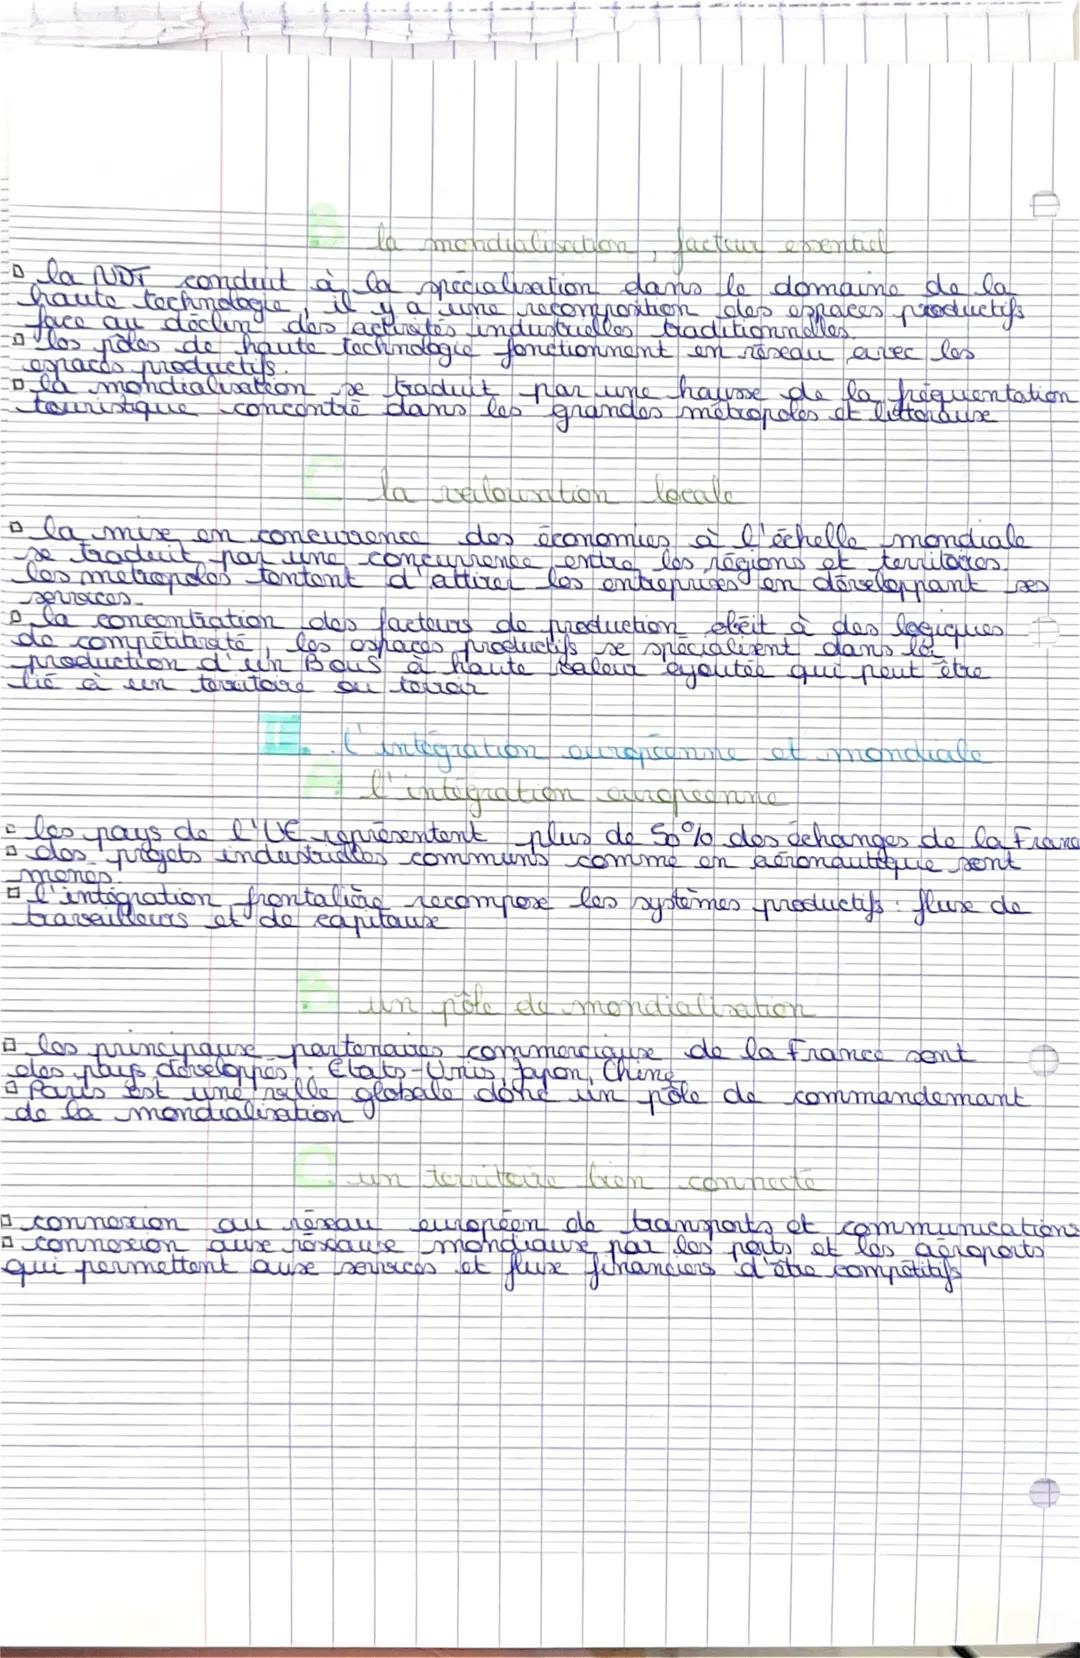 B la mondialisation, facteur essentiel
▫ la NDT conduit à la spécialisation dans le domaine de la
haute technologie, il y a une recomposition des espaces productifs
face au déclin des activités industrielles traditionnelles.
▫ les pôles de haute technologie fonctionnent en réseau avec les
espaces productifs.
▫ la mondialisation se traduit par une hausse de la fréquentation
touristique concentré dans les grandes métropoles et littoraux
C la valorisation locale
▫ la mise en concurrence des économies à l'échelle mondiale
se traduit par une concurrence entre les régions et territoires.
les métropoles tentent d'attirer les entreprises en développant ses
services.
▫ la concentration des facteurs de production obéit à des logiques
de compétitivité, les espaces productifs se spécialisent dans la
production d'un Bous à haute valeur ajoutée qui peut être
lié à un territoire ou terroir
II. L'intégration européenne et mondiale
A l'intégration européenne
▫ les pays de l'UE représentent plus de 50% des échanges de la Franc
▫ des projets industrielles communs comme en aéronautique sont
menés.
▫ l'intégration frontalière recompose les systèmes productifs : flux de
travailleurs et de capitaux
B un pôle de mondialisation
▫ les principaux partenaires commerciaux de la France sont
des pays développés : Etats-Unis, Japon, Chine
▫ Paris est une ville globale donc un pôle de commandemant
de la mondialisation
C un territoire bien connecté
▫ connexion au réseau européen de transports et communications
▫ connexion aux réseaux mondiaux par les ports et les aéroports
qui permettent aux services et flux financiers d'être compétitifs